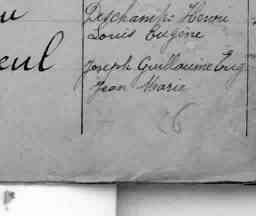 u Deschamps Henri
Louis Eugène
eul Joseph Guillaume Eug
Jean Marie